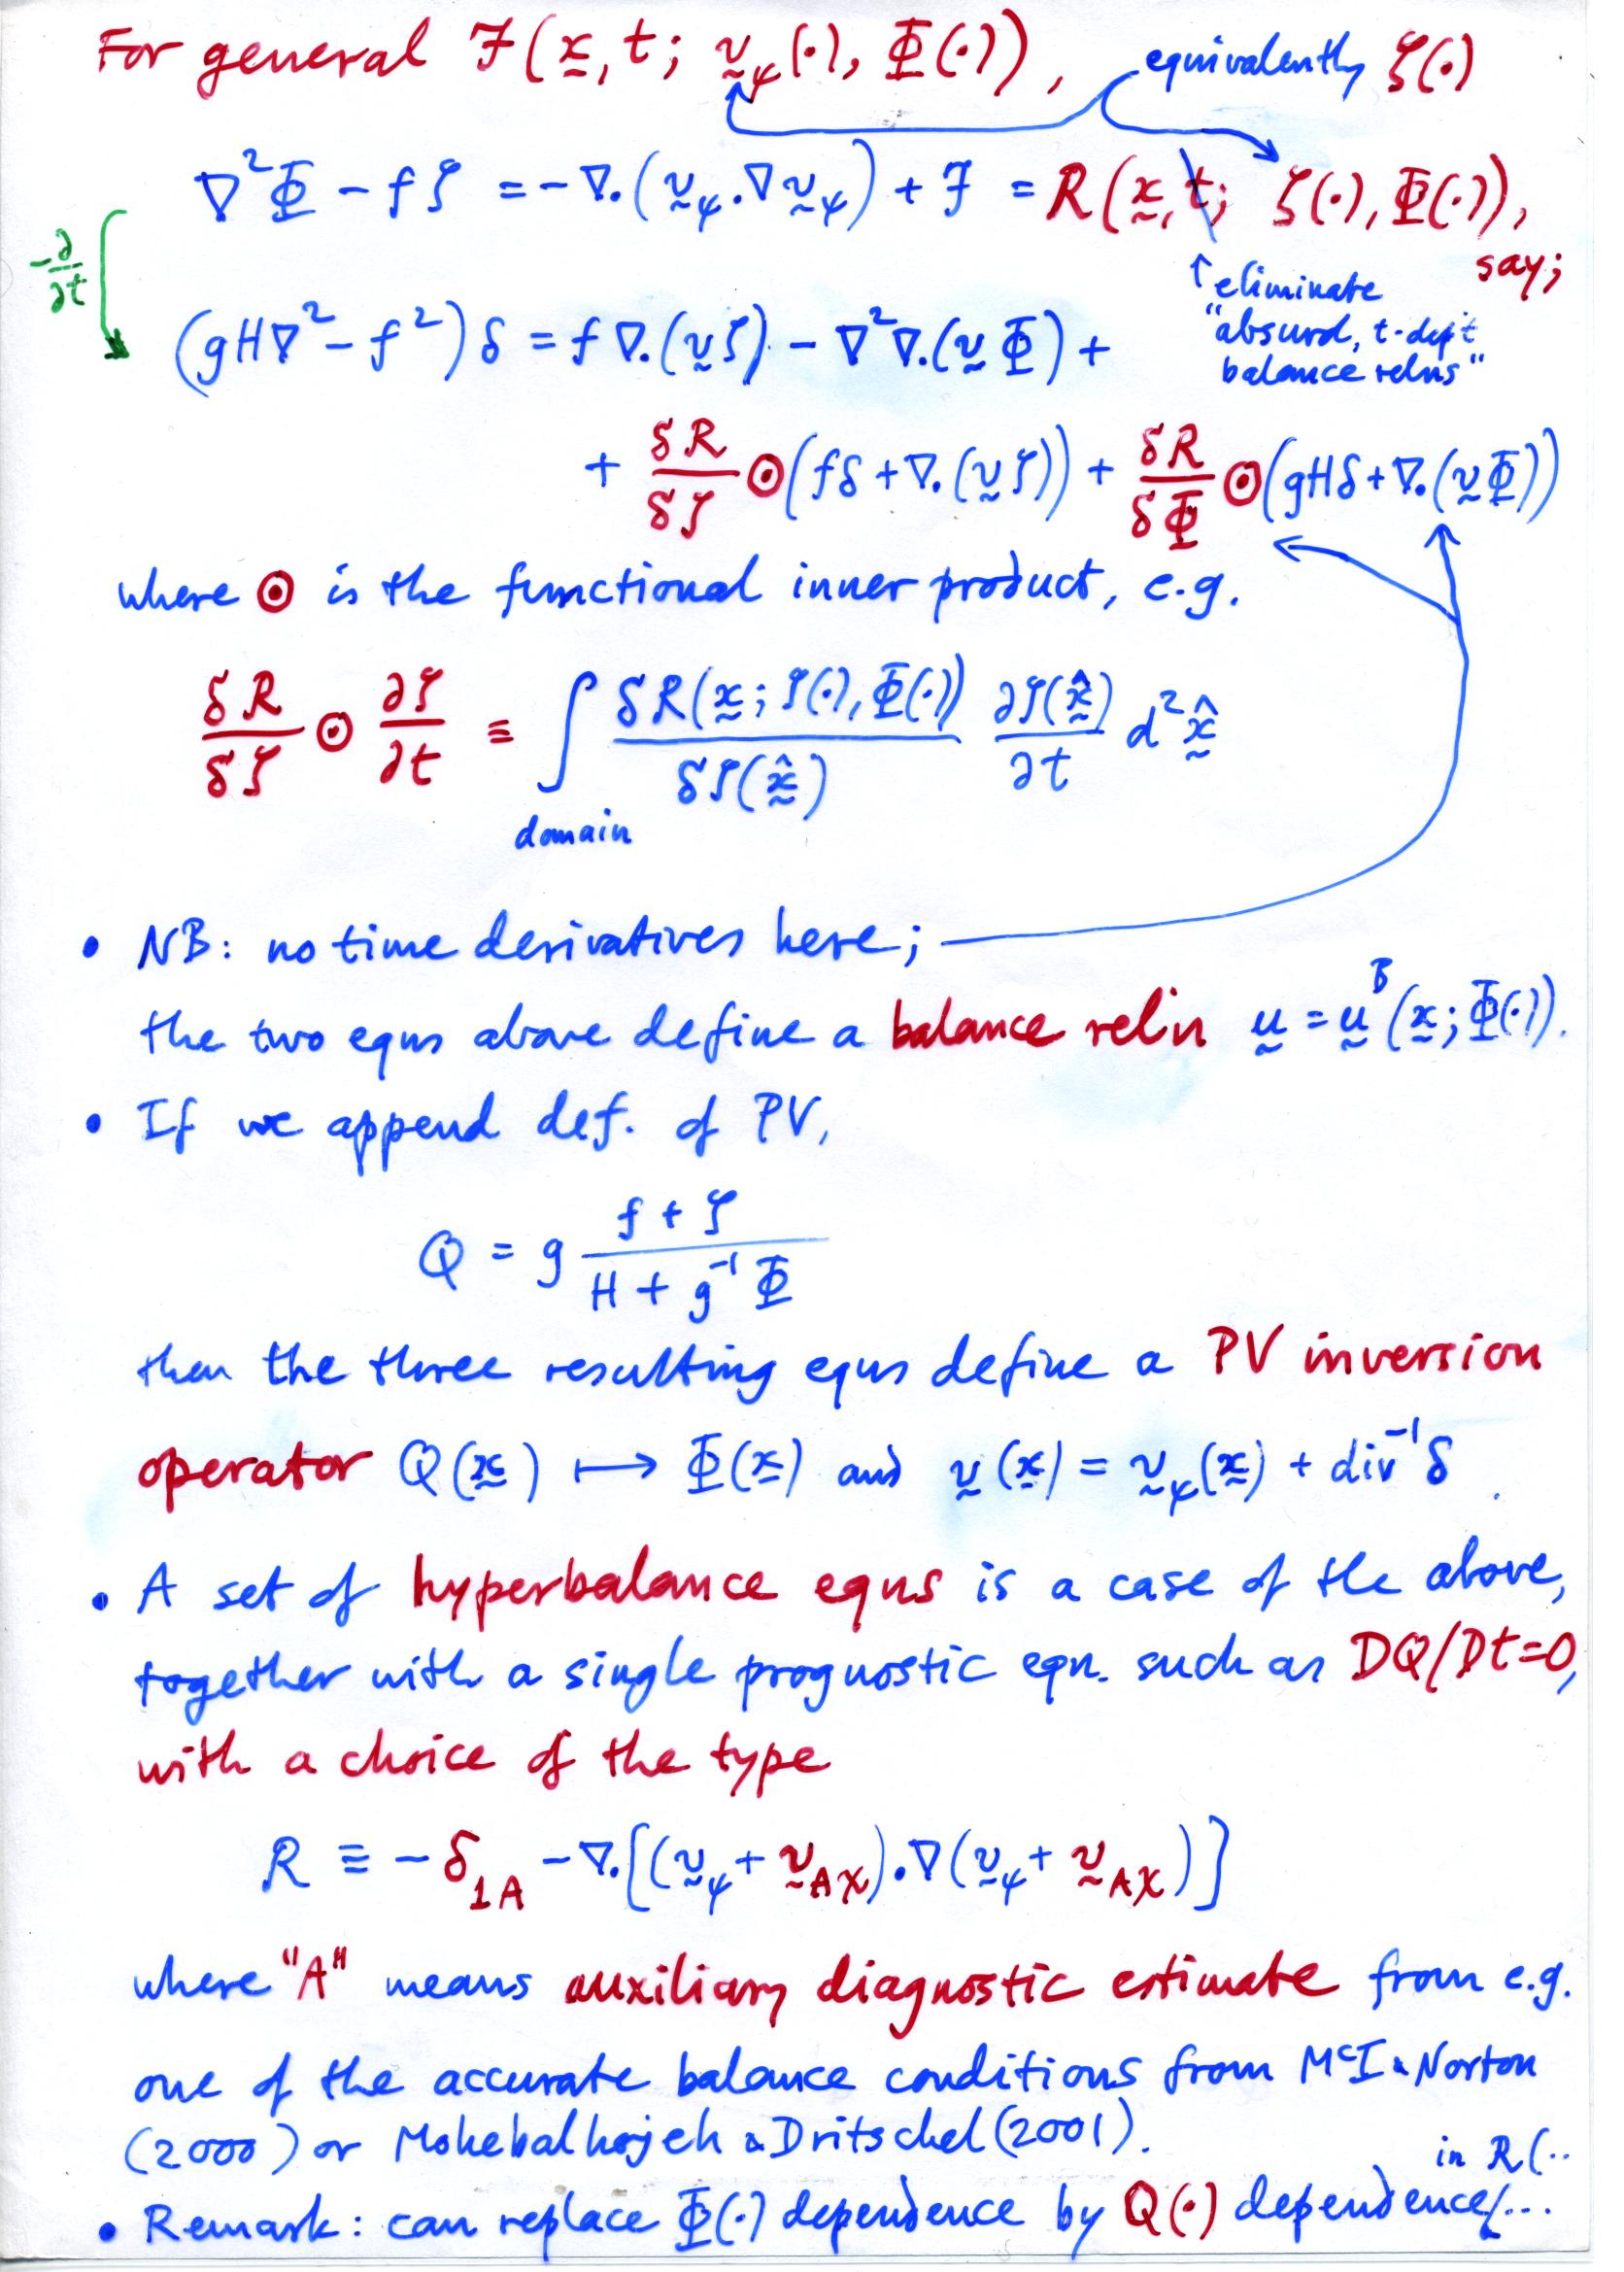 For general ℱ(x̰, t; v̰_ψ(·), Φ(·)), equivalently ζ(·)
∇²Φ − fζ = −∇.(v̰_ψ.∇v̰_ψ) + ℱ = R(x̰, t; ζ(·), Φ(·)),
say;
−∂/∂t
↑ eliminate
"absurd, t-dep't
balance relns"
(gH∇² − f²)δ = f∇.(v̰ζ) − ∇²∇.(v̰Φ) +
+ δR/δζ ⊙ (fδ + ∇.(v̰ζ)) + δR/δΦ ⊙ (gHδ + ∇.(v̰Φ))
where ⊙ is the functional inner product, e.g.
δR/δζ ⊙ ∂ζ/∂t ≡ ∫ δR(x̰; ζ(·), Φ(·))/δζ(x̰̂) ∂ζ(x̰̂)/∂t d²x̰̂
domain
• NB: no time derivatives here;
the two equns above define a balance rel'n ṵ = ṵ^B(x̰; Φ(·)).
• If we append def. of PV,
Q = g (f + ζ)/(H + g⁻¹Φ)
then the three resulting equns define a PV inversion
operator Q(x̰) ↦ Φ(x̰) and v̰(x̰) = v̰_ψ(x̰) + div⁻¹δ.
• A set of hyperbalance equns is a case of the above,
together with a single prognostic eqn. such as DQ/Dt=0,
with a choice of the type
R ≡ −δ_1A − ∇.[(v̰_ψ + v̰_Aχ).∇(v̰_ψ + v̰_Aχ)]
where "A" means auxiliary diagnostic estimate from e.g.
one of the accurate balance conditions from McI & Norton
(2000) or Mohebalhojeh & Dritschel (2001).
in R(..
• Remark: can replace Φ(·) dependence by Q(·) dependence/...